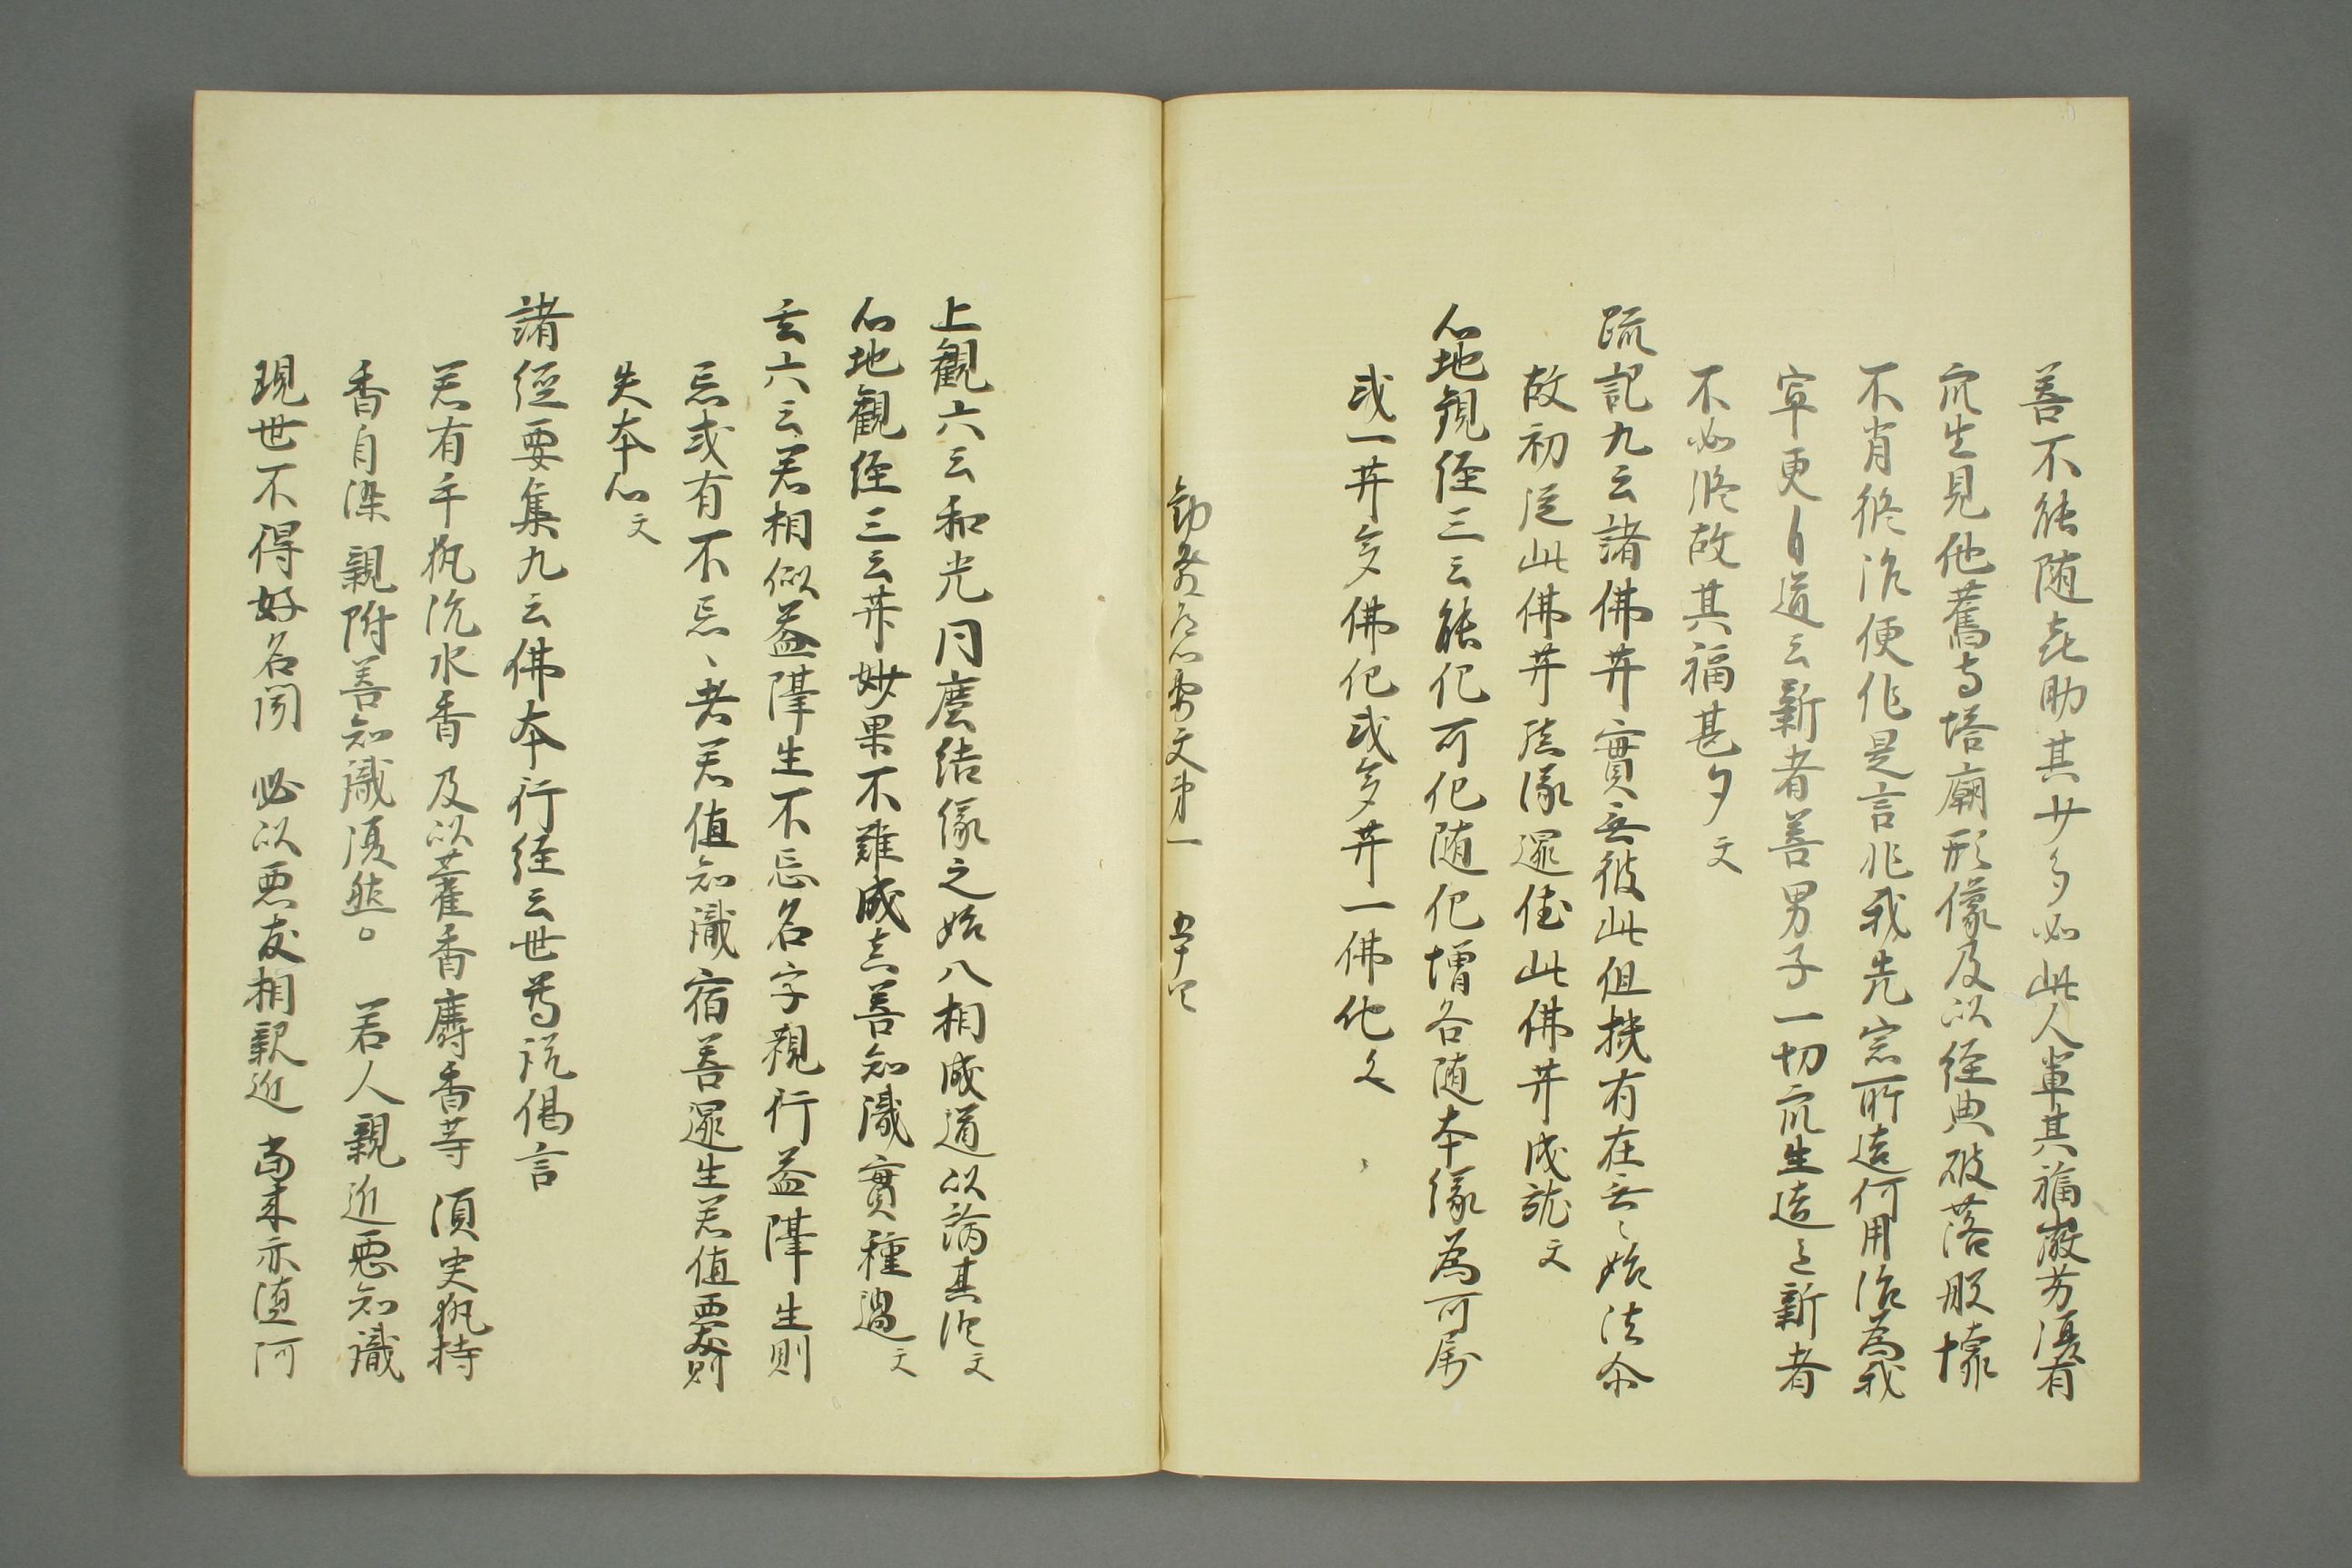 善不能随㐂助其廿多必此人軰其福㝡劣復有
众生見他舊寺塔廟形像及以経典破落毀壊
不肯修治便作是言非我先宗所造何用治為我
寧更自道云新者善男子一切众生造之新者
不如修故其福甚多文
疏記九云諸佛井實無彼此但機有在無〻始法尒
故初従此佛井結縁還住此佛井成就文
心地観経三云能化可化随化増各随本縁為可属
或一井多佛化或多井一佛化文
勧発信心要文第一
上観六云和光同塵結縁之始八相成道以論其終文
心地観経三云井妙果不難成真善知識實種遇文
玄六云若相似益隔生不忘名字観行益隔生則
忘或有不忘〻者若値知識宿善還生若値悪友則
失本心文
諸経要集九云佛本行経云世尊説偈言
若有手執沉水香　及以藿香麝香等　須臾執持
香自染　親附善知識復然。　若人親近悪知識
現世不得好名聞　必以悪友相親近　當来亦堕阿